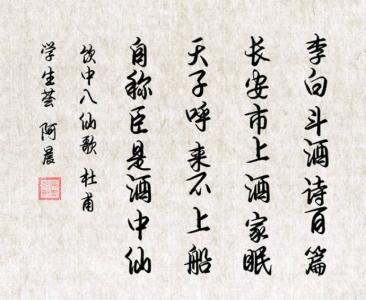 李白斗酒诗百篇
长安市上酒家眠
天子呼来不上船
自称臣是酒中仙
饮中八仙歌 杜甫
学生荟 阿晨